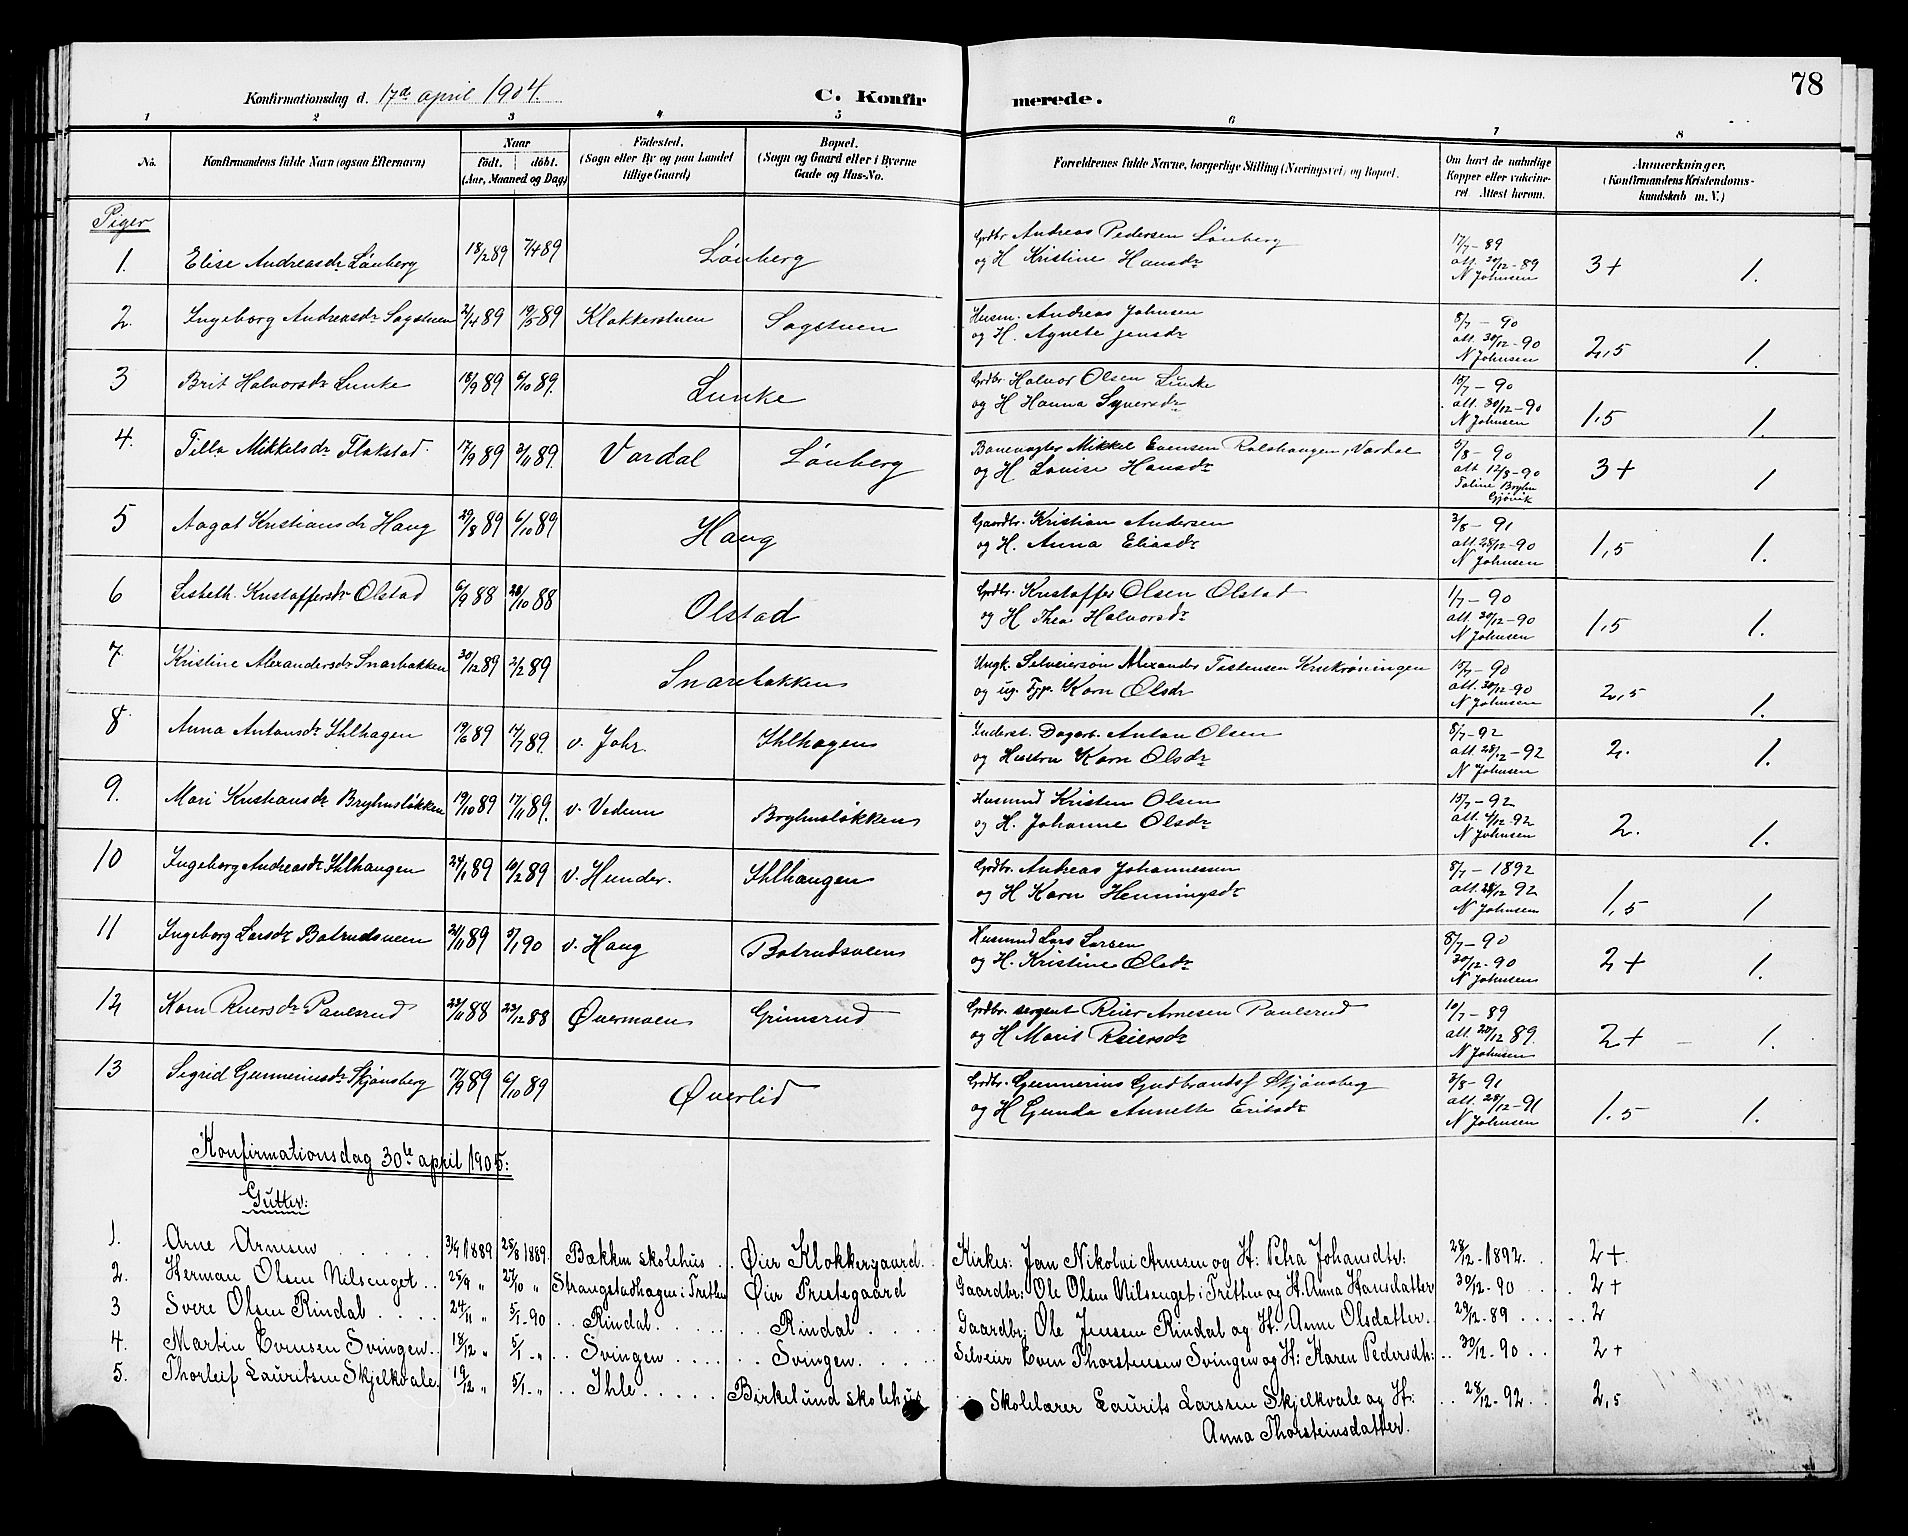 78
Konfirmationsdag d. 17de april 1904. C. Konfirmerede.
1 2 3 4 5 6 7 8
No. Konfirmandens fulde Navn (ogsaa Efternavn) Naar födt. döbt. (Aar, Maaned og Dag) Födested. (Sogn eller By og paa Landet tillige Gaard) Bopæl. (Sogn og Gaard eller i Byerne Gade og Hus-No. Forældrenes fulde Navne, borgerlige Stilling (Næringsvei) og Bopæl. Om havt de naturlige Kopper eller vakcineret Attest herom. Anmærkninger. (Konfirmandens Kristendomskundskab m. V.)
Piger
1. Elise Andreasdr Lönberg 18/2 89 7/4 89 Lönberg Grdbr Andreas Pedersen Lönberg og H Kristine Hansdr 17/7-89 att. 30/12-89 N Johnsen 3+ 1.
2. Ingeborg Andreasdr Sagstuen 2/4 89 19/5 89 Klokkerstuen Sagstuen Husm. Andreas Johnsen og H. Agnete Jensdr 8/7-90 att. 30/12-90 N Johnsen 2,5 1.
3 Brit Halvorsdr Lunke 18/9 89 6/10 89. Lunke Grdbr Halvor Olsen Lunke og H Hanna Syversdr 15/7-90 att. 30/12-90 N Johnsen 1,5 1.
4. Tilla Mikkelsdr Flakstad. 17/9 89 3/11 89. Vardal Lönberg Banevogter Mikkel Evensen Rolshaugen, Vardal og H Lovise Hansdr 5/8-90 att 12/8-90 Toline Bryhn Gjövik 3+ 1
5 Aagot Kristiansdr Haug 29/8 89 6/10 89 Haug Gaardbr. Kristian Andersen og H. Anna Eliasdr 3/8-91 att. 28/12-90 N Johnsen 1,5 1.
6 Lisbeth. Kristoffersdr Olstad 6/9 88 28/10 88 Olstad Grdbr. Kristoffer Olsen Olstad og H Thea Halvorsdr 1/7-90 att. 30/12-90 N Johnsen 1,5 1.
7. Kristine Alexandersdr Snarbakken 30/12 89 2/2 89 Snarbakken Ungk. Selveiersön Alexander Tostensen og ug. Karn Olsdr 15/7-90 att. 30/12-90 N Johnsen 2,5 1.
8 Anna Antonsdr Ihlhagen 19/6 89 14/7 89. v. Johr. Ihlhagen Inderst. Dagarb. Anton Olsen og Hustru Karn Olsdr 8/7-92 att. 28/12-92 N Johnsen 2. 1.
9. Mari Kristiansdr Bryhnslökken 19/10 89 17/11 89. v. Vedum Bryhnslökken Husmand Kristen Olsen og H. Johanne Olsdr 15/7-92 att. 4/12-92 N Johnsen 2. 1.
10 Ingeborg Andreasdr Ihlhaugen 24/1 89 10/2 89 v. Hunder. Ihlhaugen Grdbr. Andreas Johannessen og H Karn Henningsdr 8/7-1892 att. 28/12 92 N Johnsen 1,5 1
11 Ingeborg Larsdr Botrudsveen 21/11 89 5/1 90 v. Haug Botrudsveen Husmand Lars Larsen og H. Kristine Olsdr 8/7-90 30/12-90 N Johnsen 2+ 1.
12 Karn Reiersdr Paulsrud 22/11 88 23/12 88 Övermoen Grimsrud Grdbr. sergent Reier Arnesen Paulsrud og H Marit Reiersdr 10/7-89 att. 20/12 89. N Johnsen 2+ - 1.
13 Sigrid Gunneriusdr Skjönsberg 17/9 89 6/10 89 Øverlid Grdbr. Gunnerius Gudbrandsf Skjönsberg og H Gunda Annette Eriksdr 3/8-91 att. 28/12-91 N Johnsen 1.5 1.
Konfirmationsdag 30te april 1905:
Gutter:
1. Arne Arnesen 3/4 1889 25/8 1889. Bækken skolehus Øier Klokkergaard Kirkes: Jan Nikolai Arnesen og H: Petra Johansdtr: 28/12-1892. 2+
2. Herman Olsen Nilsenget 25/9 " 27/10 " Strangstadhagen i Tretten Øier Prestegaard Gaardbr: Ole Olsen Nilsenget i Tretten og H. Anna Hansdatter 30/12-90 2+
3 Svere Olsen Rindal 24/11 " 5/1-90 Rindal. Rindal Gaardbr: Ole Jensen Rindal og H. Anne Olsdatter. 29/12-89 2
4. Martin Evensen Svingen 18/12 " 5/1-" Svingen Svingen Selveier Even Thorstensen Svingen og H: Karen Pedersdtr: 30/12-90 2+
5. Thorleif Lauritsen Skjelkvale 19/12 " 5/1-" Ihle Birkelund skolehus Skolelærer Laurits Larssen Skjelkvale og H: 28/12-92 2,5
Anna Thorsteinsdatter.